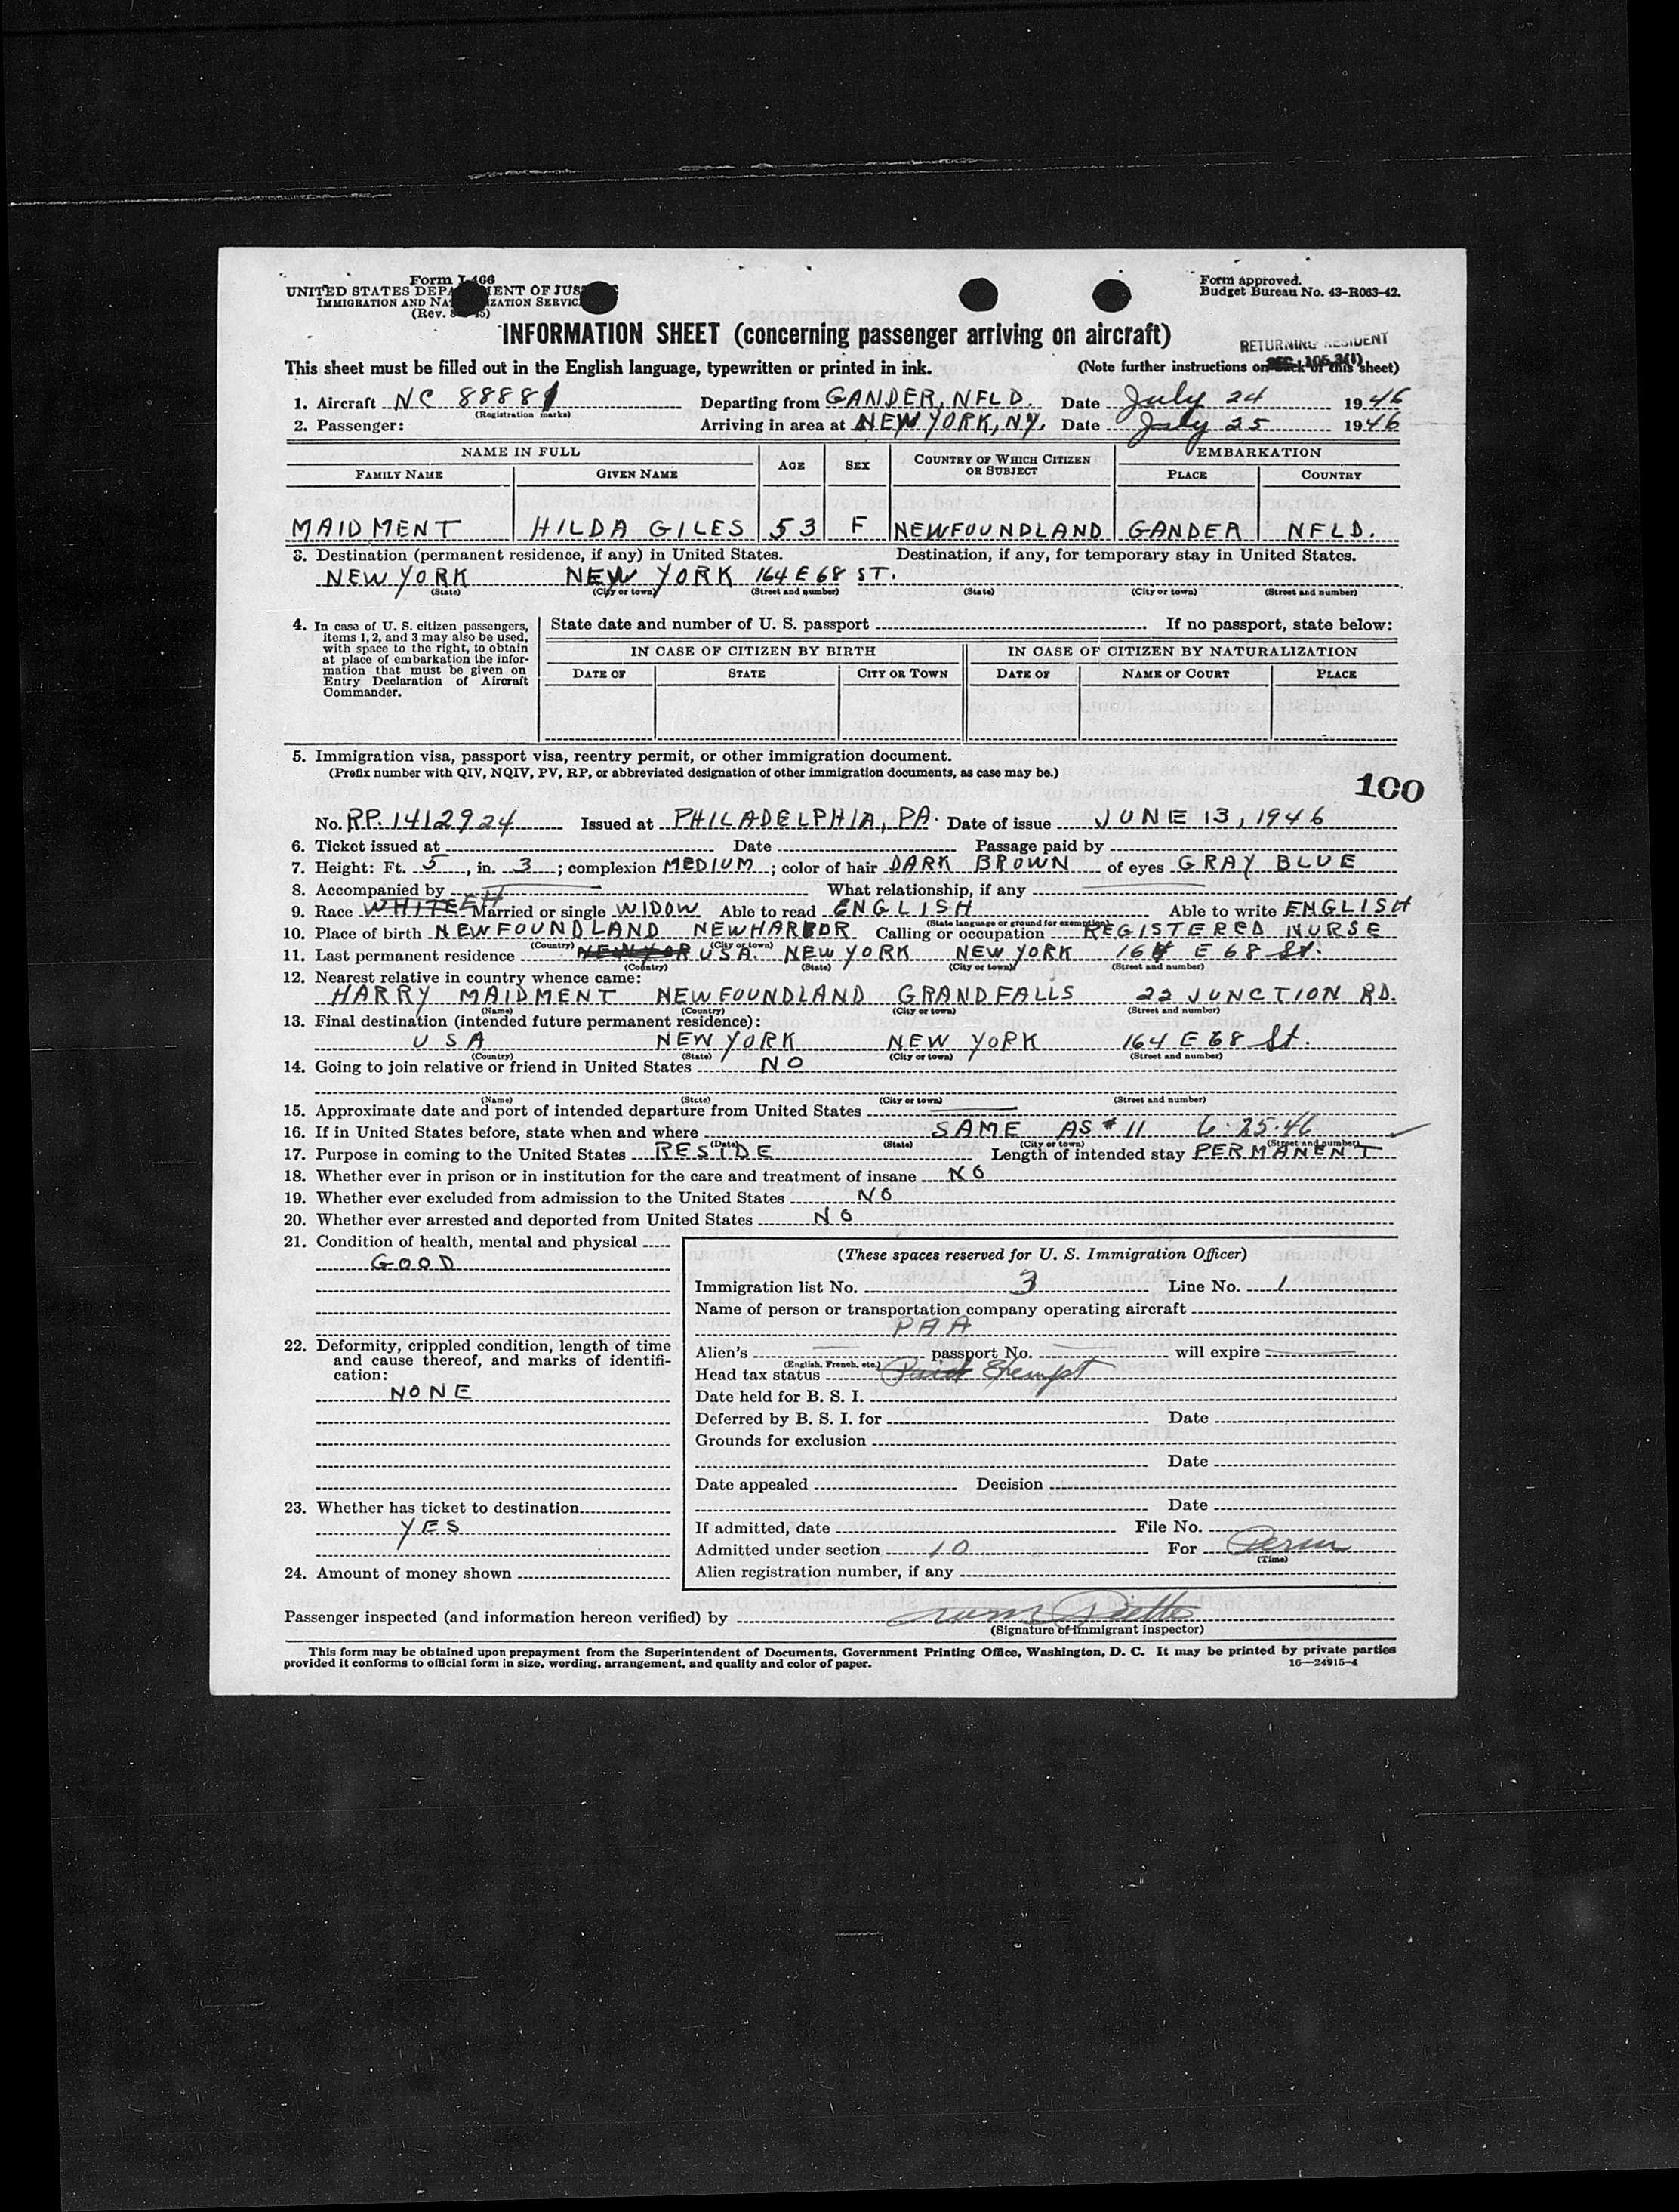 Form I-466
UNITED STATES DEPA ENT OF JUS
IMMIGRATION AND NA IZATION SERVIC
(Rev.
Form approved.
Budget Bureau No. 43-R063-42.
INFORMATION SHEET (concerning passenger arriving on aircraft)
RETURNING RESIDENT
SEC. 105.3(1)
This sheet must be filled out in the English language, typewritten or printed in ink. (Note further instructions on back of this sheet)
1. Aircraft NC 88881 Departing from GANDER, NFLD. Date July 24 1946
(Registration marks)
2. Passenger: Arriving in area at NEW YORK, NY. Date July 25 1946
NAME IN FULL AGE SEX COUNTRY OF WHICH CITIZEN OR SUBJECT EMBARKATION
FAMILY NAME GIVEN NAME PLACE COUNTRY
MAIDMENT HILDA GILES 53 F NEWFOUNDLAND GANDER NFLD.
3. Destination (permanent residence, if any) in United States. Destination, if any, for temporary stay in United States.
NEW YORK NEW YORK 164 E 68 ST.
(State) (City or town) (Street and number) (State) (City or town) (Street and number)
4. In case of U. S. citizen passengers, items 1, 2, and 3 may also be used, with space to the right, to obtain at place of embarkation the information that must be given on Entry Declaration of Aircraft Commander.
State date and number of U. S. passport If no passport, state below:
IN CASE OF CITIZEN BY BIRTH IN CASE OF CITIZEN BY NATURALIZATION
DATE OF STATE CITY OR TOWN DATE OF NAME OF COURT PLACE
5. Immigration visa, passport visa, reentry permit, or other immigration document.
(Prefix number with QIV, NQIV, PV, RP, or abbreviated designation of other immigration documents, as case may be.)
100
No. RP. 1412924 Issued at PHILADELPHIA, PA. Date of issue JUNE 13, 1946
6. Ticket issued at Date Passage paid by
7. Height: Ft. 5, in. 3; complexion MEDIUM; color of hair DARK BROWN of eyes GRAY BLUE
8. Accompanied by What relationship, if any
9. Race WHITE EH Married or single WIDOW Able to read ENGLISH Able to write ENGLISH
(State language or ground for exemption)
10. Place of birth NEWFOUNDLAND NEWHARBOR Calling or occupation REGISTERED NURSE
(Country) (City or town)
11. Last permanent residence NEW YOR USA. NEW YORK NEW YORK 164 E 68 St.
(Country) (State) (City or town) (Street and number)
12. Nearest relative in country whence came:
HARRY MAIDMENT NEWFOUNDLAND GRANDFALLS 22 JUNCTION RD.
(Name) (Country) (City or town) (Street and number)
13. Final destination (intended future permanent residence):
USA NEW YORK NEW YORK 164 E 68 St.
(Country) (State) (City or town) (Street and number)
14. Going to join relative or friend in United States NO
(Name) (State) (City or town) (Street and number)
15. Approximate date and port of intended departure from United States
16. If in United States before, state when and where SAME AS #11 6-25-46
(Date) (State) (City or town) (Street and number)
17. Purpose in coming to the United States RESIDE Length of intended stay PERMANENT
18. Whether ever in prison or in institution for the care and treatment of insane NO
19. Whether ever excluded from admission to the United States NO
20. Whether ever arrested and deported from United States NO
21. Condition of health, mental and physical
GOOD
22. Deformity, crippled condition, length of time and cause thereof, and marks of identification:
NONE
23. Whether has ticket to destination
YES
24. Amount of money shown
(These spaces reserved for U. S. Immigration Officer)
Immigration list No. 3 Line No. 1
Name of person or transportation company operating aircraft
PAA
Alien's passport No. will expire
(English, French, etc.)
Head tax status Paid Exempt
Date held for B. S. I.
Deferred by B. S. I. for Date
Grounds for exclusion
Date
Date appealed Decision
Date
If admitted, date File No.
Admitted under section 10 For Perm
(Time)
Alien registration number, if any
Passenger inspected (and information hereon verified) by
(Signature of immigrant inspector)
This form may be obtained upon prepayment from the Superintendent of Documents, Government Printing Office, Washington, D. C. It may be printed by private parties
provided it conforms to official form in size, wording, arrangement, and quality and color of paper. 16—24915-4